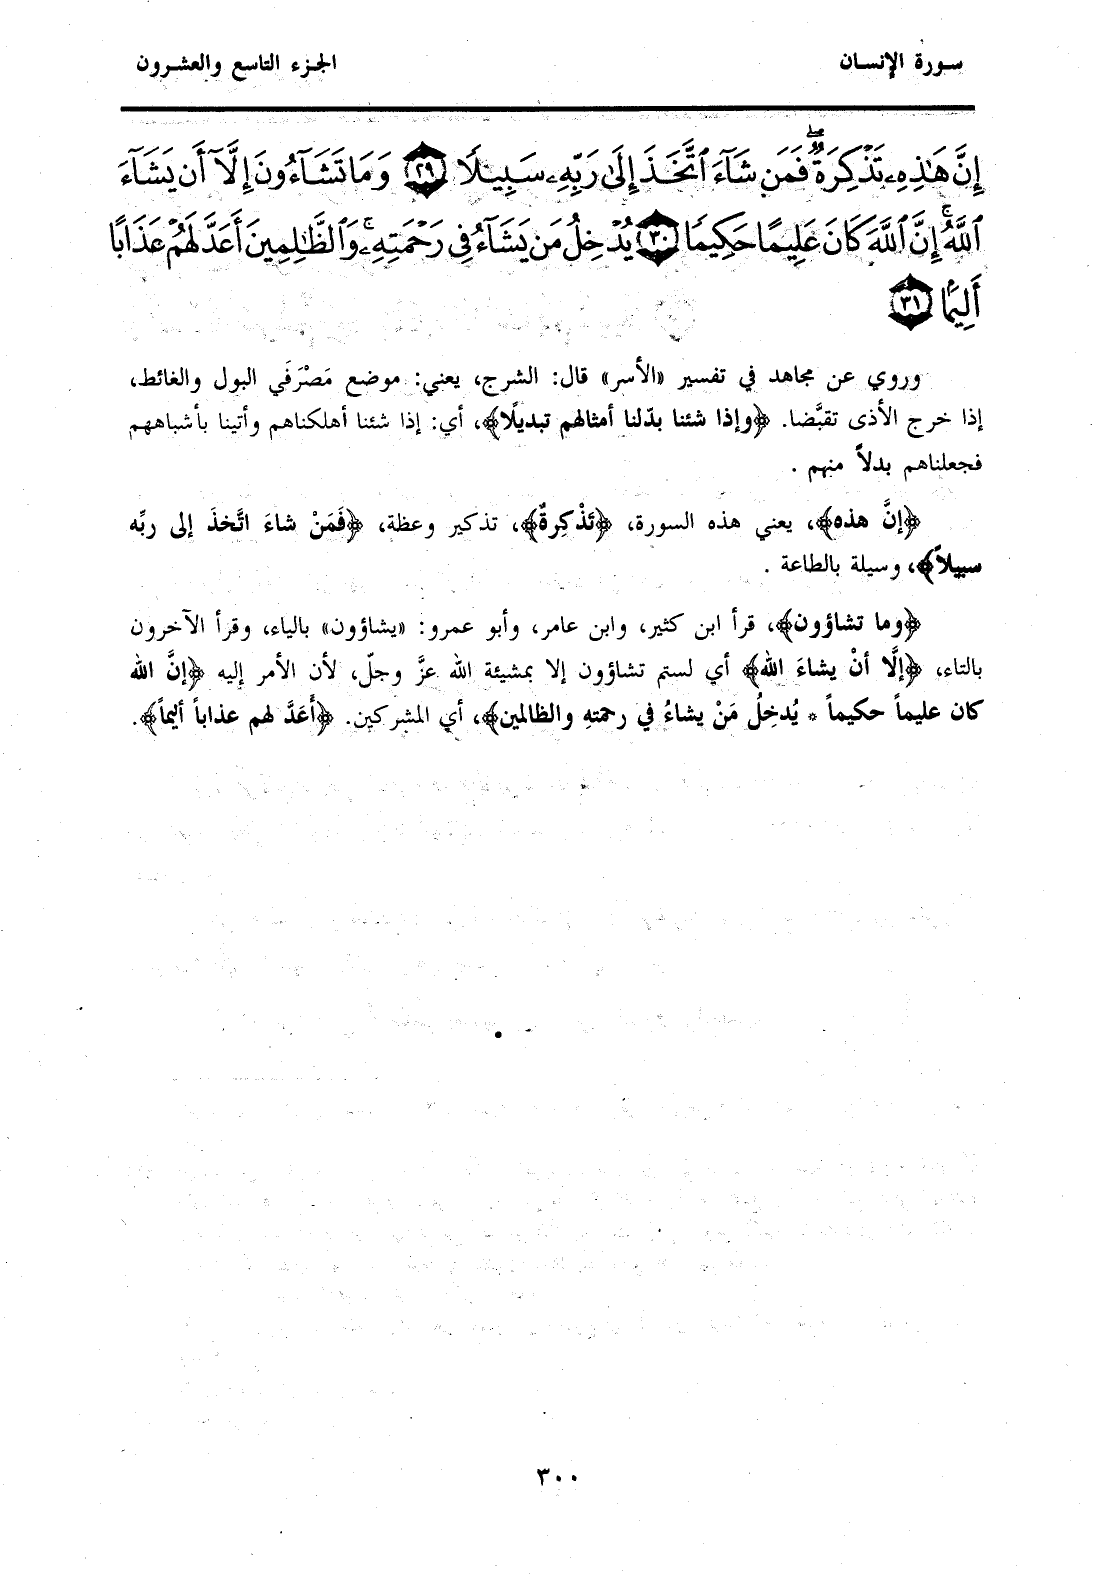 سورة الإنسان
الجزء التاسع والعشرون
إِنَّ هَٰذِهِۦ تَذْكِرَةٌ ۖ فَمَن شَآءَ ٱتَّخَذَ إِلَىٰ رَبِّهِۦ سَبِيلًا ٢٩ وَمَا تَشَآءُونَ إِلَّآ أَن يَشَآءَ
ٱللَّهُ ۚ إِنَّ ٱللَّهَ كَانَ عَلِيمًا حَكِيمًا ٣٠ يُدْخِلُ مَن يَشَآءُ فِى رَحْمَتِهِۦ ۚ وَٱلظَّٰلِمِينَ أَعَدَّ لَهُمْ عَذَابًا
أَلِيمًۢا ٣١
وروي عن مجاهد في تفسير «الأسر» قال: الشرج، يعني: موضع مَصْرَفَي البول والغائط،
إذا خرج الأذى تقبَّضا. ﴿وإذا شئنا بدّلنا أمثالهم تبديلًا﴾، أي: إذا شئنا أهلكناهم وأتينا بأشباههم
فجعلناهم بدلاً منهم .
﴿إنَّ هذه﴾، يعني هذه السورة، ﴿تَذْكِرةٌ﴾، تذكير وعظة، ﴿فَمَنْ شاءَ اتَّخذَ إلى ربِّه
سبيلاً﴾، وسيلة بالطاعة .
﴿وما تشاؤون﴾، قرأ ابن كثير، وابن عامر، وأبو عمرو: «يشاؤون» بالياء، وقرأ الآخرون
بالتاء، ﴿إلَّا أنْ يشاءَ الله﴾ أي لستم تشاؤون إلا بمشيئة الله عزَّ وجلّ، لأن الأمر إليه ﴿إنَّ الله
كان عليماً حكيماً * يُدخِلُ مَنْ يشاءُ في رحمتهِ والظالمين﴾، أي المشركين. ﴿أَعَدَّ لهم عذاباً أليماً﴾.
٣٠٠